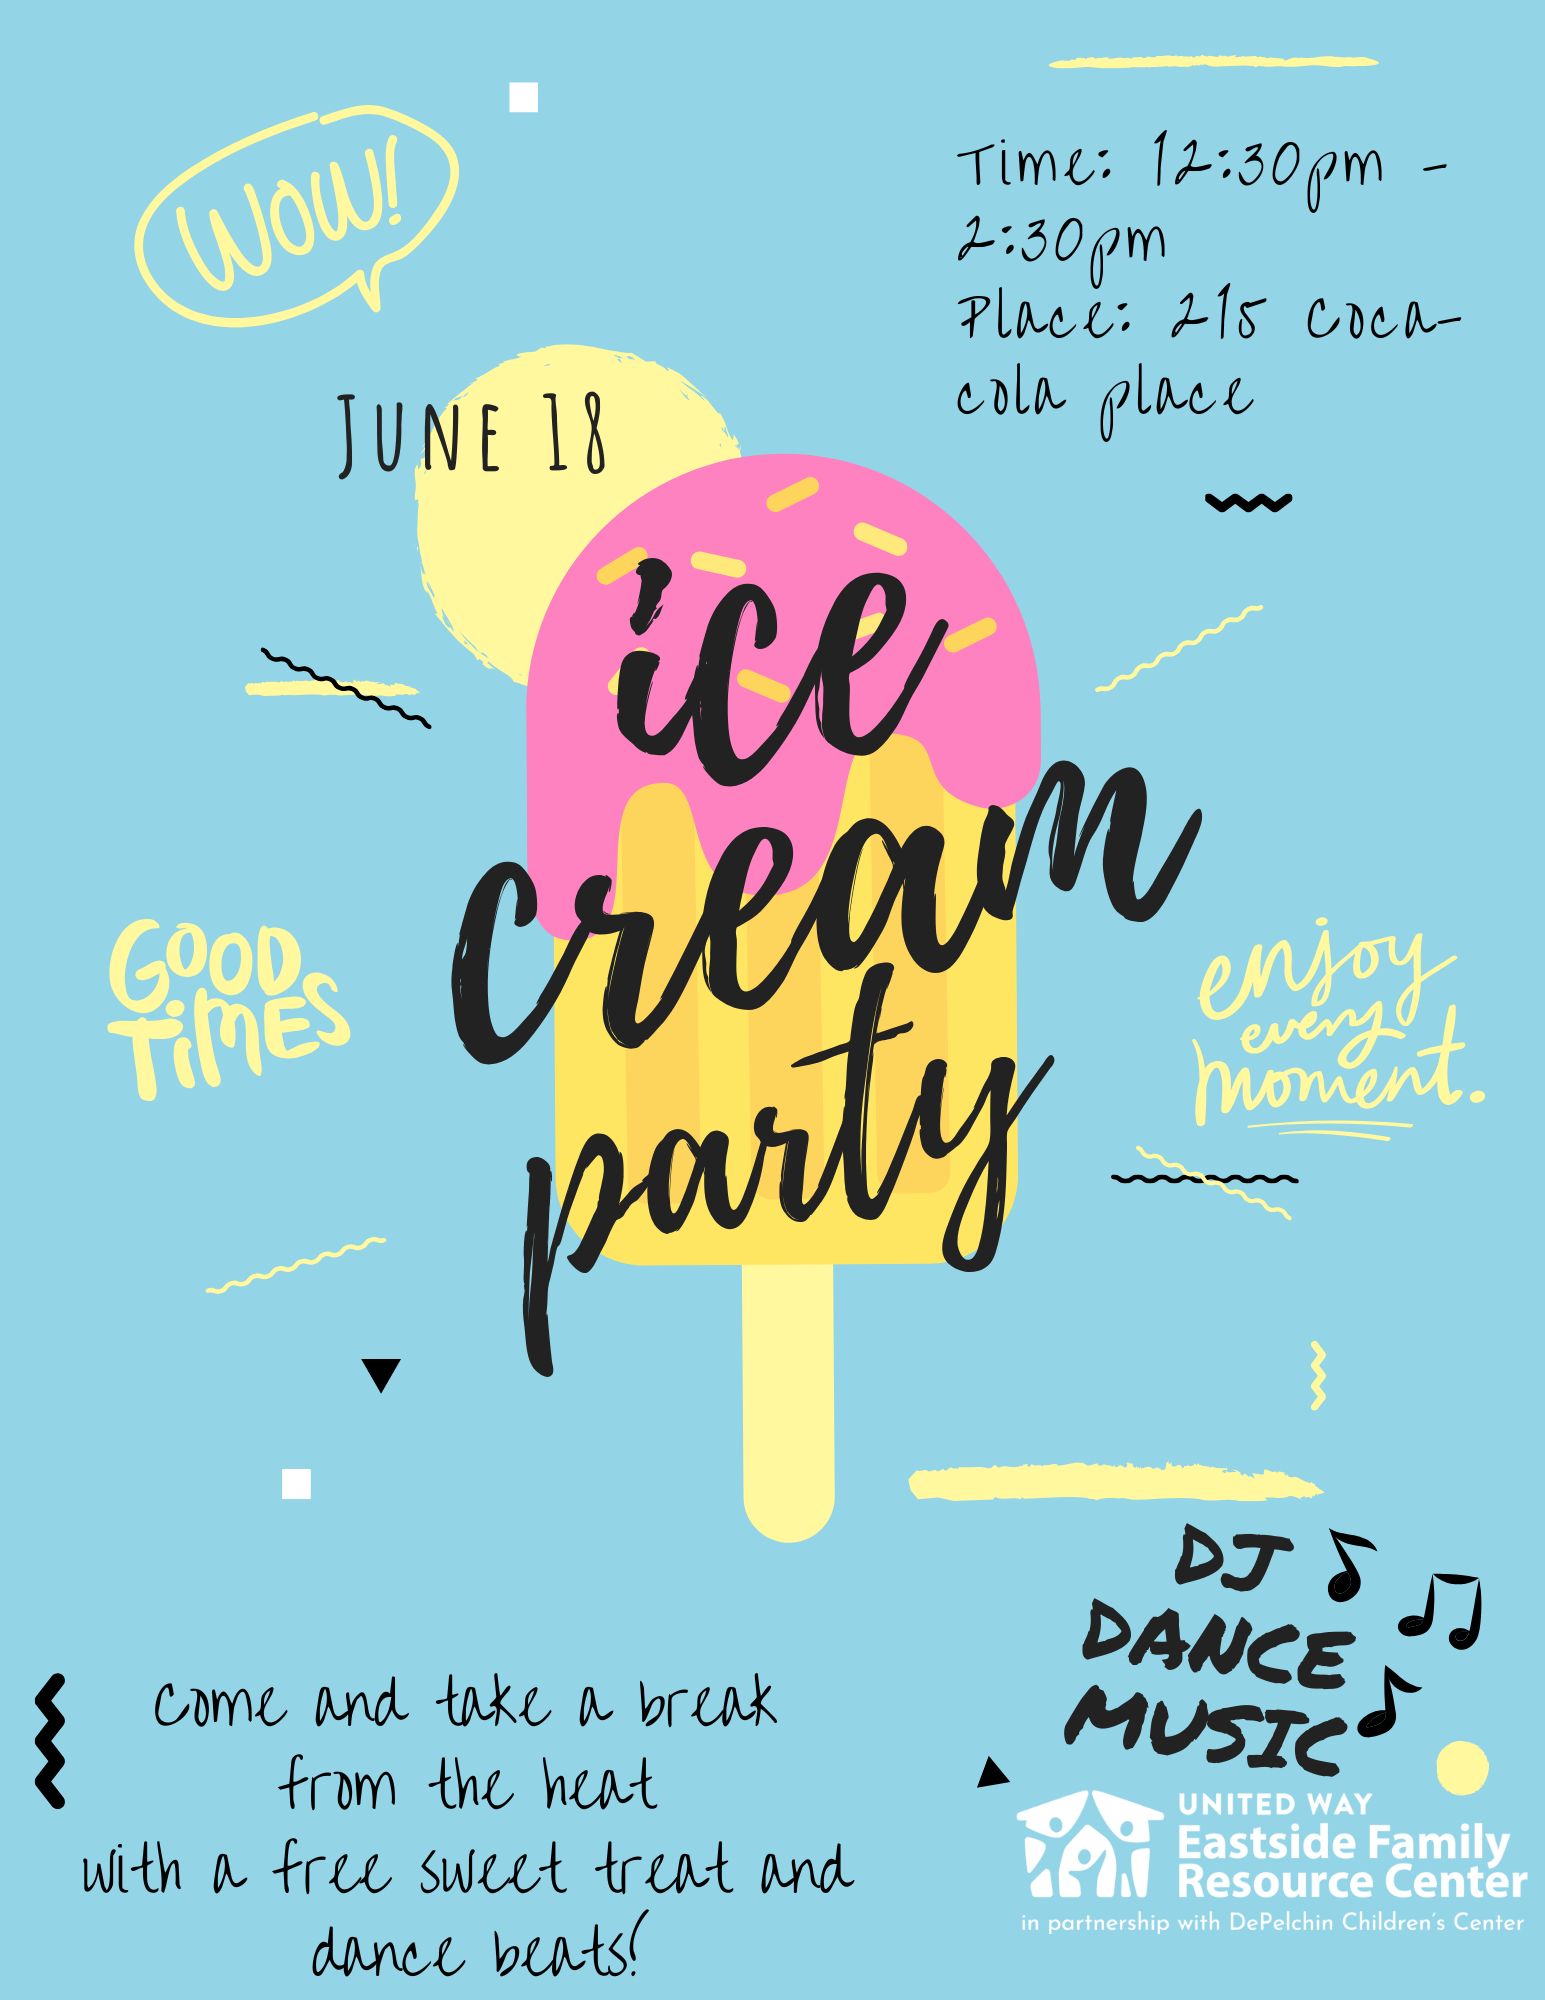 Wow!
Time: 12:30pm -
2:30pm
Place: 215 Coca-
cola place
June 18
ice
cream
party
GOOD
TiMES
enjoy
every
moment.
DJ
DANCE
MUSIC
Come and take a break
from the heat
with a free sweet treat and
dance beats!
UNITED WAY
Eastside Family
Resource Center
in partnership with DePelchin Children's Center